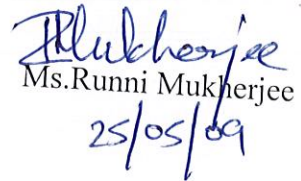 RMukherjee
Ms.Runni Mukherjee
25/05/09